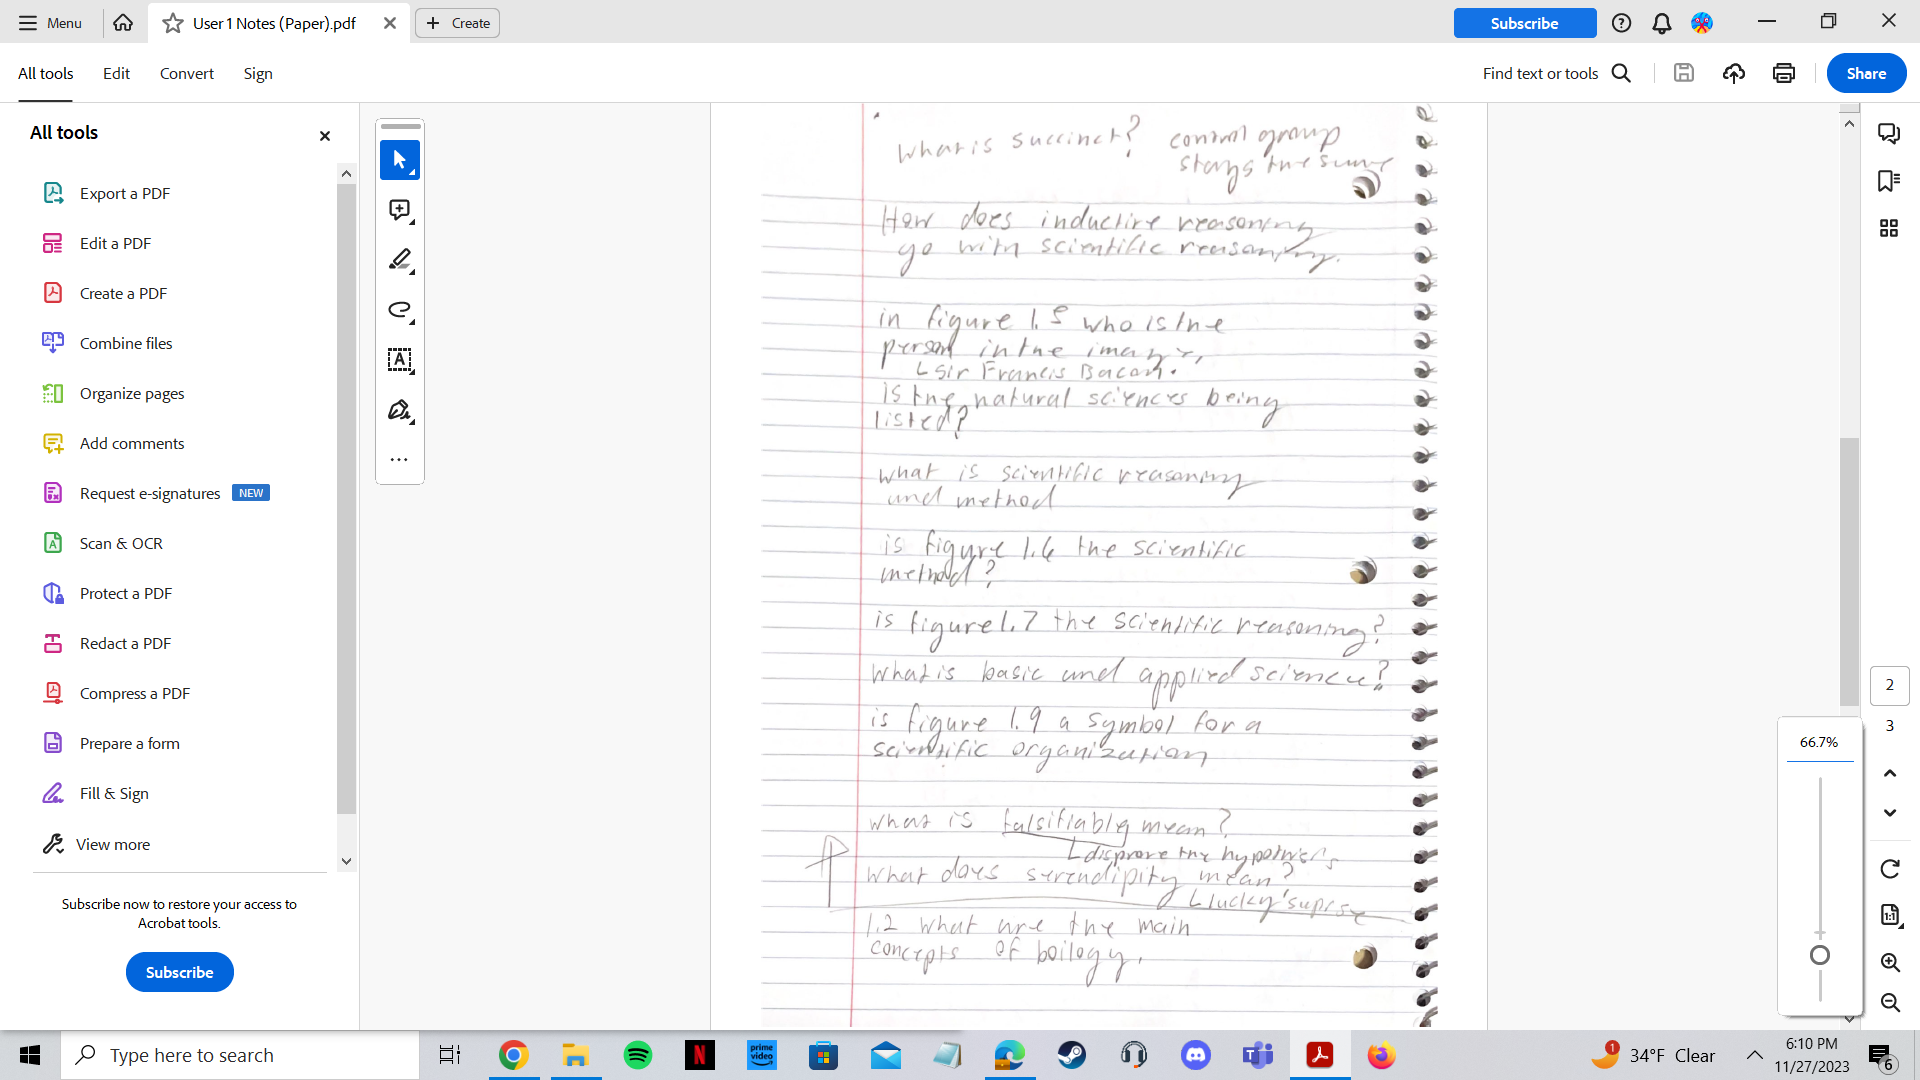 Menu
User 1 Notes (Paper).pdf
Create
Subscribe
All tools
Edit
Convert
Sign
Find text or tools
Share
All tools
Export a PDF
Edit a PDF
Create a PDF
Combine files
Organize pages
Add comments
Request e-signatures NEW
Scan & OCR
Protect a PDF
Redact a PDF
Compress a PDF
Prepare a form
Fill & Sign
View more
Subscribe now to restore your access to
Acrobat tools.
Subscribe
What is succinct? control group
stays the same
How does inductive reasoning
go with scientific reasoning.
in figure 1.5 who is the
person in the image,
Sir Francis Bacon.
Is the natural sciences being
listed?
what is scientific reasoning
and method
is figure 1.6 the scientific
method?
is figure 1.7 the scientific reasoning?
What is basic and applied science?
is figure 1.9 a symbol for a
scientific organization
what is falsifiably mean?
disprove the hypothesis
what does serendipity mean?
lucky suprise
1.2 what are the main
concepts of boilogy.
2
3
66.7%
1:1
Type here to search
prime video
1
34°F Clear
6:10 PM
11/27/2023
6